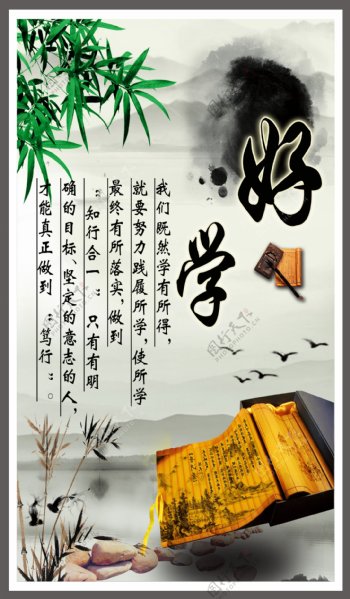 好学
我们既然学有所得，
就要努力践履所学，使所学
最终有所落实，做到
“知行合一”。只有有明
确的目标、坚定的意志的人，
才能真正做到“笃行”。